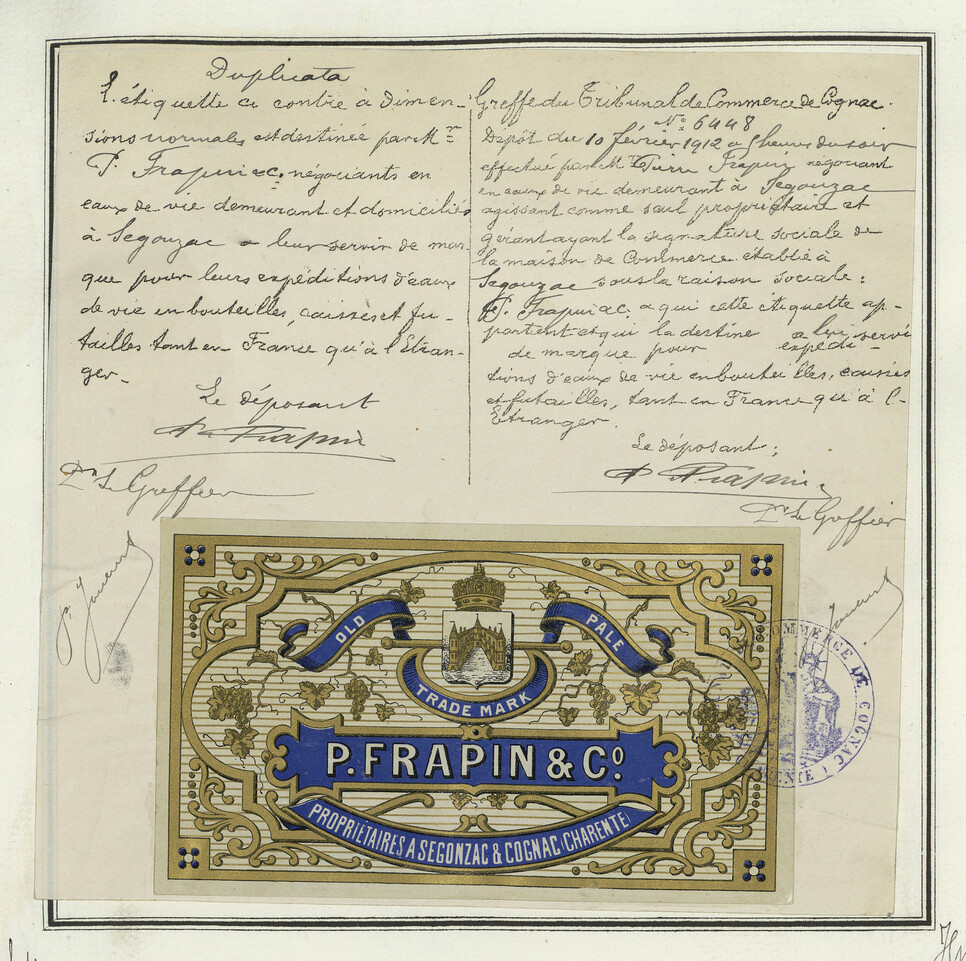 Duplicata
L'étiquette ci contre à dimen-
sions normales est destinée par Mr
P. Frapin & C. négociants en
eaux de vie demeurant et domiciliés
à Segonzac a leur servir de mar-
que pour leurs expéditions d'eaux
de vie en bouteilles, caisses et fu-
tailles tant en France qu'à l'Etran-
ger.
Le déposant
P. Frapin
Le Greffier
Greffe du Tribunal de Commerce de Cognac.
No 6448
Depôt du 10 février 1912 a 5 heures du soir
effectué par Mr Pierre Frapin négociant
en eaux de vie demeurant à Segonzac
agissant comme seul propriétaire et
gérant ayant la signature sociale de
la maison de Commerce établie à
Segonzac sous la raison sociale :
P. Frapin & C. a qui cette étiquette ap-
partient et qui la destine a lui servi
de marque pour expédi-
tions d'eaux de vie en bouteilles, caisses
et futailles, tant en France qu'à l'-
Etranger.
Le déposant ;
P. Frapin
Le Greffier
OLD PALE
TRADE MARK
P. FRAPIN & Co.
PROPRIÉTAIRES A SEGONZAC & COGNAC (CHARENTE)
COMMERCE DE COGNAC